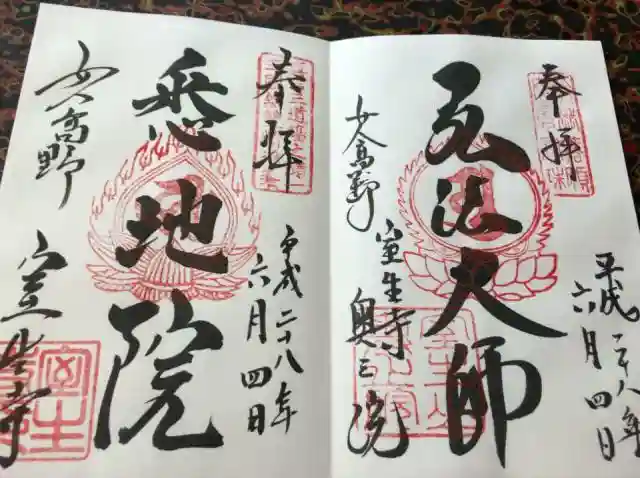 奉拝
弘法大師
女人高野
室生寺
奥之院
平成二十八年
六月四日
奉拝
悉地院
平成二十八年
六月四日
女人高野
室生寺